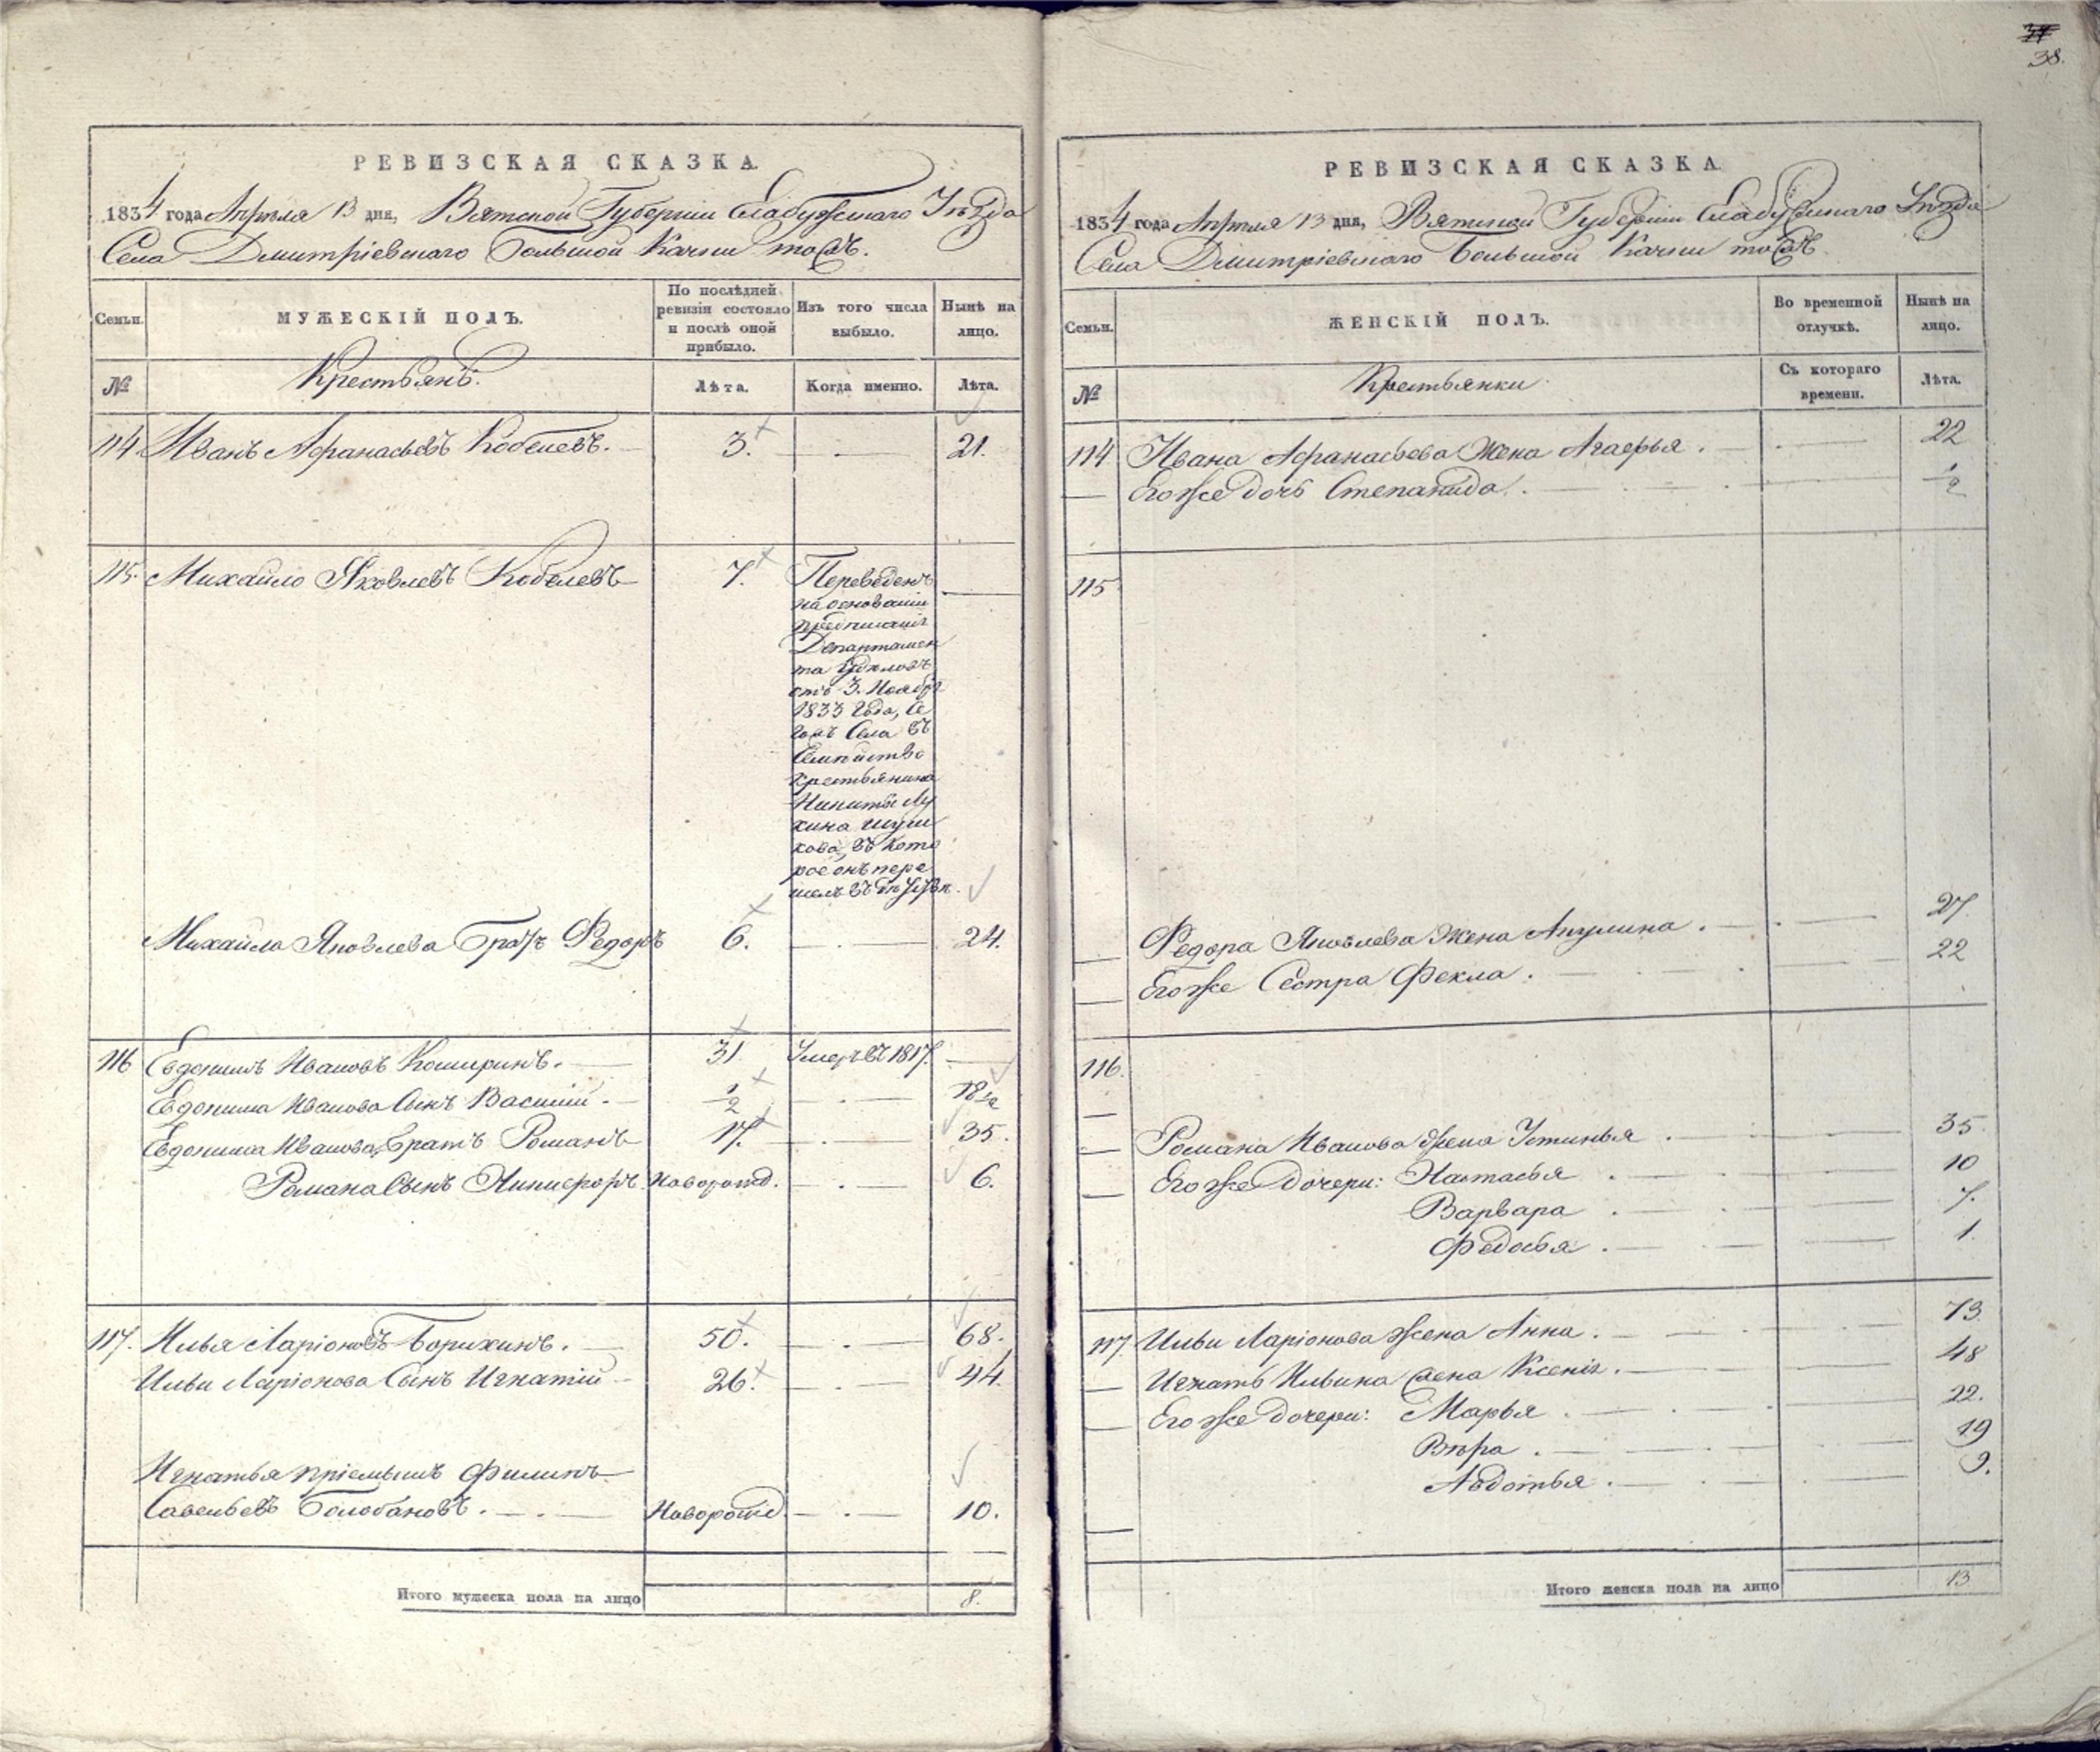 37
38.
РЕВИЗСКАЯ СКАЗКА.
1834 года Апрѣля 13 дня, Вятской Губерніи Елабужскаго Уѣзда
Села Дмитріевскаго Большой Качки тожъ.
Семьи.
МУЖЕСКІЙ ПОЛЪ.
По послѣдней ревизіи состояло и послѣ оной прибыло.
Изъ того числа выбыло.
Нынѣ на лицо.
№
Крестьянъ.
Лѣта.
Когда именно.
Лѣта.
114 Иванъ Афанасьевъ Кобелевъ. 3. 21.
115. Михайло Яковлевъ Кобелевъ 7. Переведенъ
на основаніи
предписанія
Департамен
та Удѣловъ
отъ 3. Ноября
1833 года, се
гожъ Села въ
Семейство
крестьянина
Никиты Лу
кина
кова, въ кото
рое онъ пере
шелъ въ
Михайла Яковлева Братъ Федоръ 6. 24.
116 Евдокимъ Ивановъ Коширинъ. 31 Умеръ въ 1817.
Евдокима Иванова Сынъ Василій. 1/2 18 1/2
Евдокима Иванова Братъ Романъ 17. 35.
Романа Сынъ Никифоръ. Новорожд. 6.
117. Илья Ларіоновъ Борихинъ. 50. 68.
Ильи Ларіонова Сынъ Игнатій 26. 44.
Игнатья пріемышъ Филипъ
Савельевъ Голобановъ. Новорожд. 10.
Итого мужеска пола на лицо 8.
РЕВИЗСКАЯ СКАЗКА.
1834 года Апрѣля 13 дня, Вятской Губерніи Елабужскаго Уѣзда
Села Дмитріевскаго Большой Качки тожъ.
Семьи.
ЖЕНСКІЙ ПОЛЪ.
Во временной отлучкѣ.
Нынѣ на лицо.
№
Крестьянки.
Съ котораго времени.
Лѣта.
114 Ивана Афанасьева Жена Агафья. 22
Его же дочь Степанида. 1/2
115
Федора Яковлева Жена Акулина. 27.
Его же Сестра Фекла. 22
116.
Романа Иванова Жена Устинья. 35.
Его же дочери: Настасья. 10
Варвара. 7.
Федосья. 1.
117. Ильи Ларіонова жена Анна. 73
Игнатья Ильина жена Ксенія. 48
Его же дочери: Марья. 22.
Вѣра. 19
Авдотья. 9.
Итого женска пола на лицо 13